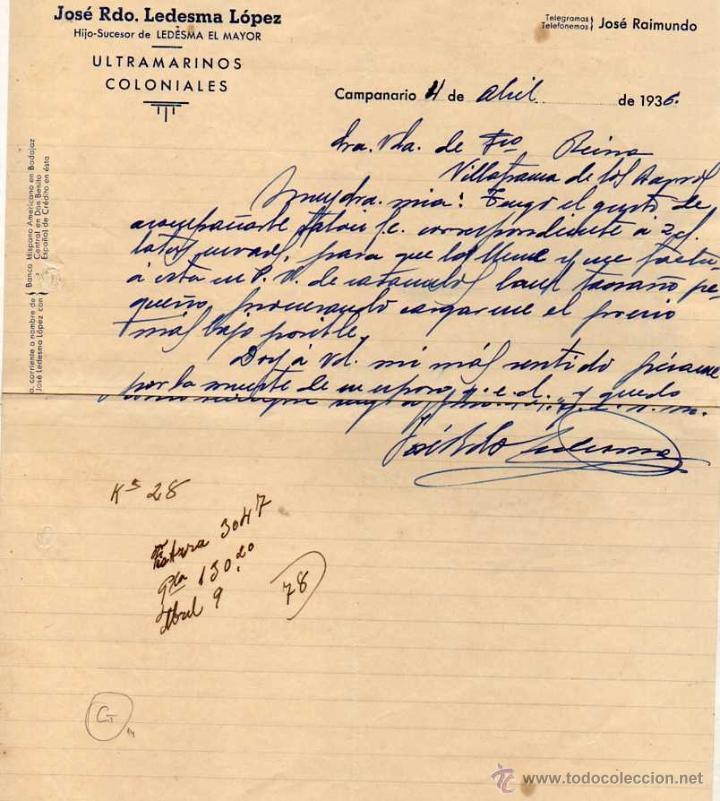 José Rdo. Ledesma López
Hijo-Sucesor de LEDESMA EL MAYOR
ULTRAMARINOS
COLONIALES
Telegramas
Telefonemas
José Raimundo
Campanario 4 de abril de 1936.
Sra. Vda. de Fco Reina
Villafranca de los
Muy Sra. mia: Tengo el gusto de
acompañarle talón f.c. correspondiente á 2 c/
latas para que las llene y me
á esta en P. V. de lata tamaño pe-
queño, procurando cargarme el precio
más bajo posible.
Doy á Vd. mi más sentido pésame
por la muerte de su esposo q.e.d. y quedo
José Rdo Ledesma
Ks 28
Factura 3047
Pta 130,20
Abril 9
78
a. corriente a nombre de
José Ledesma López con
Banco Hispano Americano en Badajoz
Central en Don Benito
Español de Crédito en ésta
www.todocoleccion.net